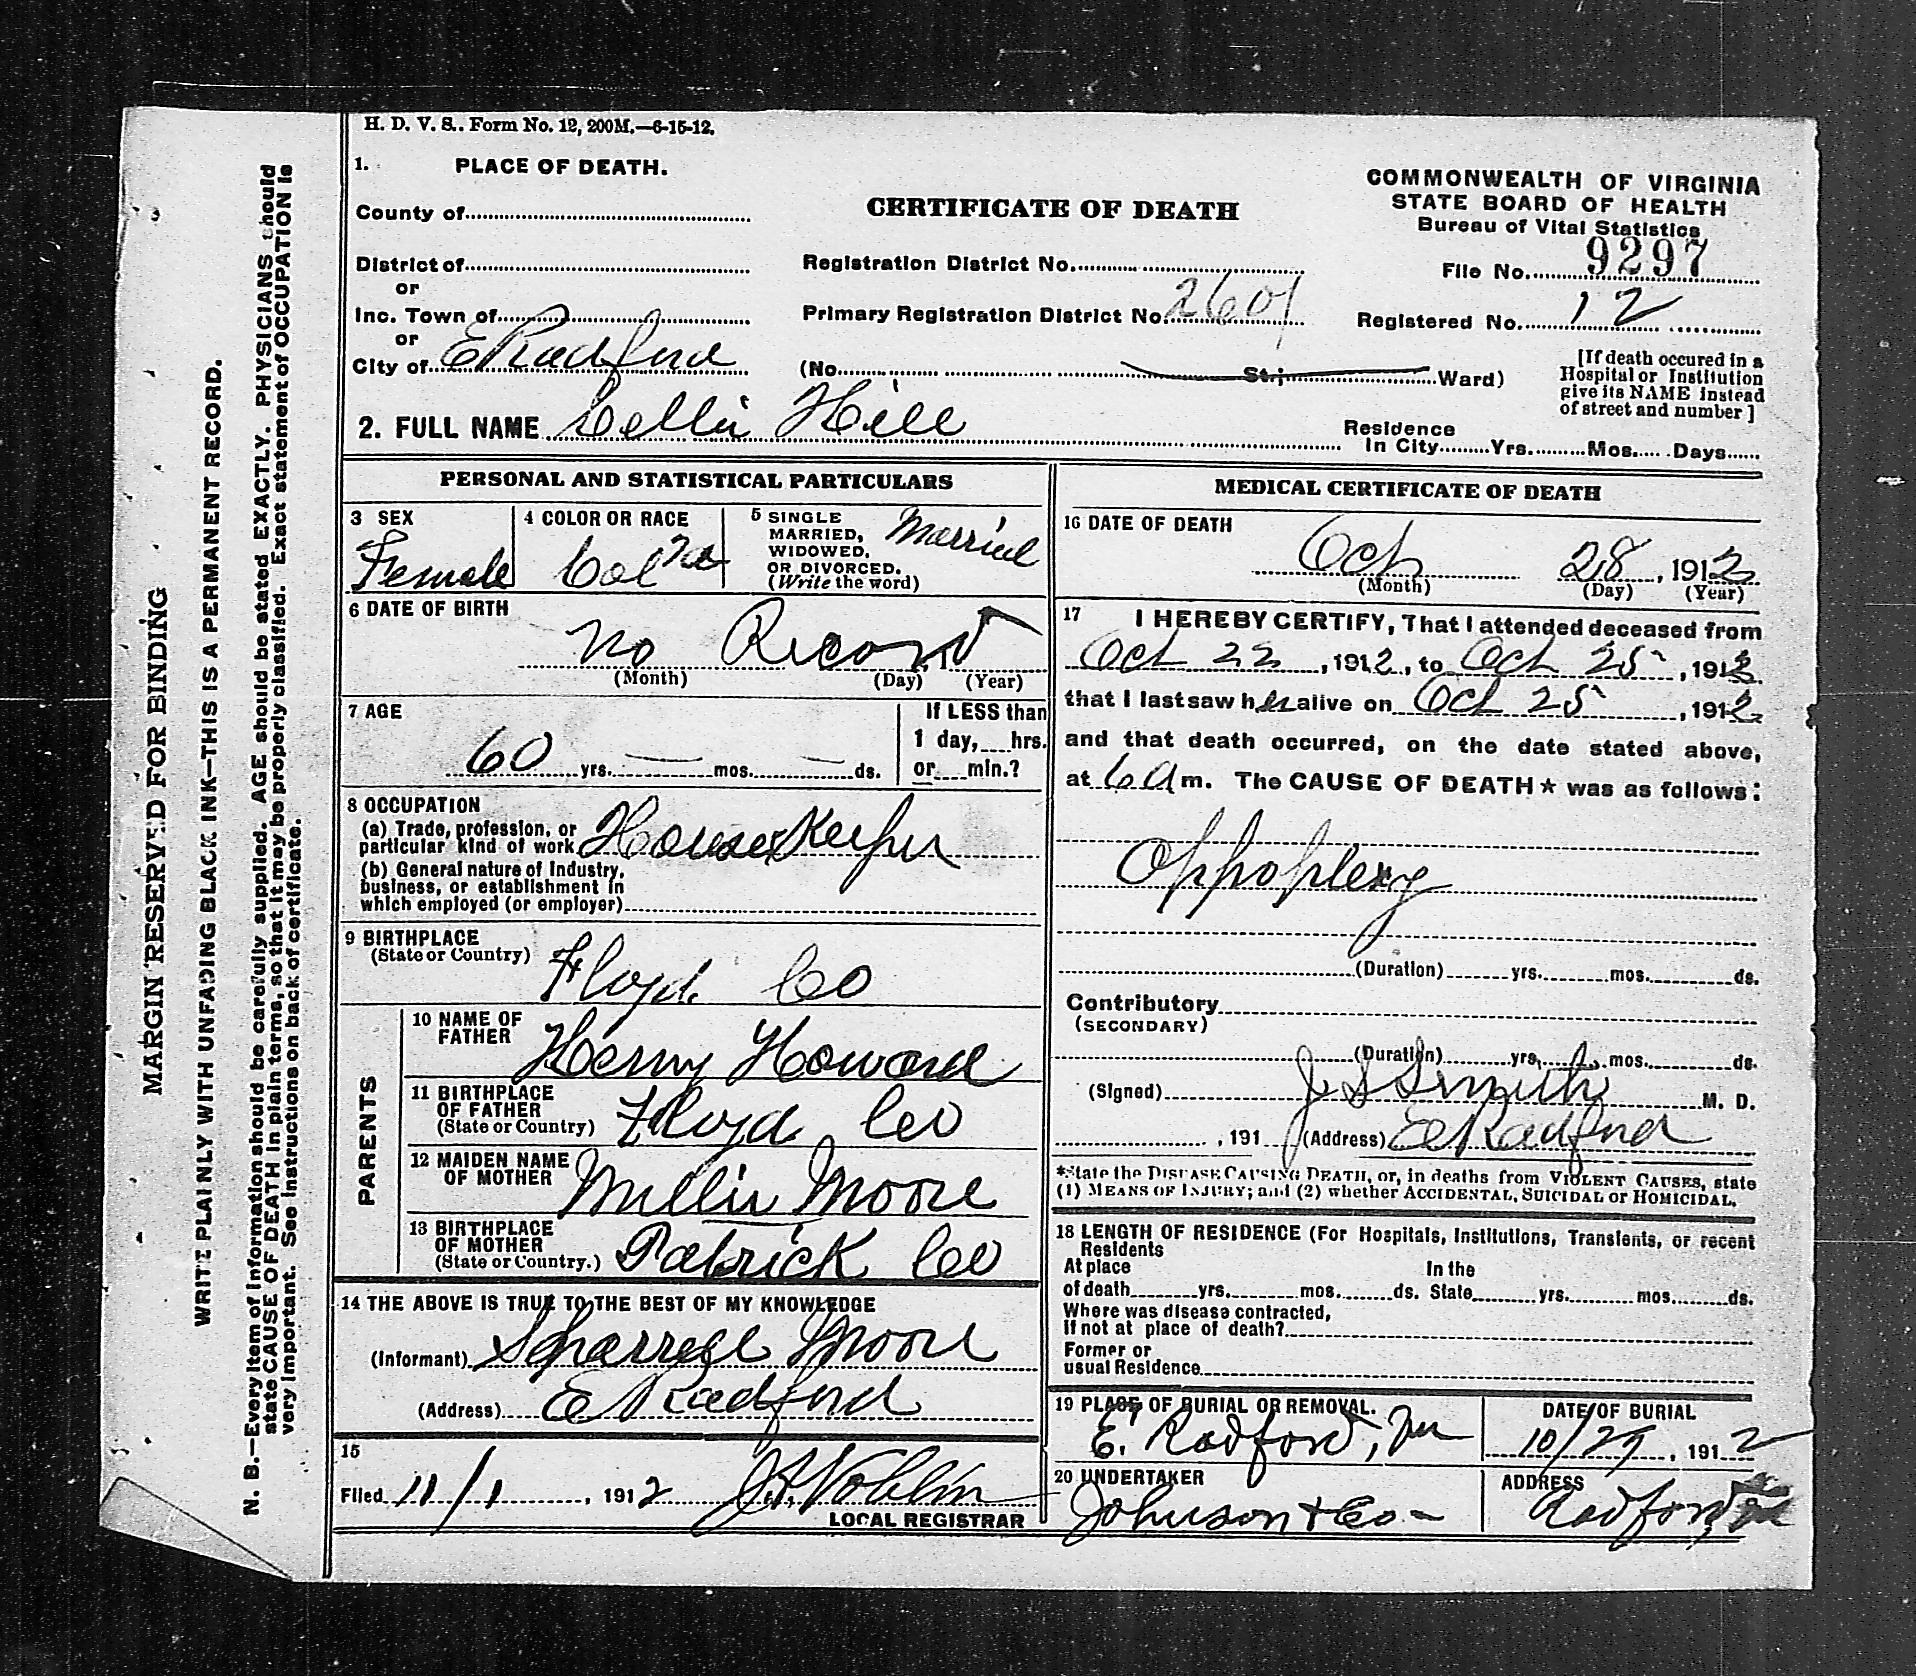 H. D. V. S. Form No. 12, 200M.—6-15-12.
1. PLACE OF DEATH.
County of
District of
or
Inc. Town of
or
City of E Radford
CERTIFICATE OF DEATH
Registration District No.
Primary Registration District No. 2601
(No. St.; Ward)
COMMONWEALTH OF VIRGINIA
STATE BOARD OF HEALTH
Bureau of Vital Statistics
File No. 9297
Registered No. 12
[If death occured in a
Hospital or Institution
give its NAME instead
of street and number]
2. FULL NAME Cellie Hill
Residence
In City Yrs. Mos. Days
PERSONAL AND STATISTICAL PARTICULARS
3 SEX
Female
4 COLOR OR RACE
Col'rd
5 SINGLE
MARRIED,
WIDOWED,
OR DIVORCED.
(Write the word)
Married
6 DATE OF BIRTH
No Record
(Month) (Day) (Year)
7 AGE
60 yrs. — mos. — ds.
If LESS than
1 day, hrs.
or min.?
8 OCCUPATION
(a) Trade, profession, or
particular kind of work House Keeper
(b) General nature of Industry,
business, or establishment in
which employed (or employer)
9 BIRTHPLACE
(State or Country) Floyd Co
PARENTS
10 NAME OF
FATHER Henry Howard
11 BIRTHPLACE
OF FATHER
(State or Country) Floyd Co
12 MAIDEN NAME
OF MOTHER Millie Moore
13 BIRTHPLACE
OF MOTHER
(State or Country.) Patrick Co
14 THE ABOVE IS TRUE TO THE BEST OF MY KNOWLEDGE
(Informant) Moore
(Address) E Radford
15
Filed 11/1, 1912
LOCAL REGISTRAR
MEDICAL CERTIFICATE OF DEATH
16 DATE OF DEATH
Oct 28, 1912
(Month) (Day) (Year)
17 I HEREBY CERTIFY, That I attended deceased from
Oct 22, 1912, to Oct 25, 1912
that I last saw her alive on Oct 25, 1912
and that death occurred, on the date stated above,
at 6 a m. The CAUSE OF DEATH★ was as follows:
Oppoplexy
(Duration) yrs. mos. ds.
Contributory
(SECONDARY)
(Duration) yrs. mos. ds.
(Signed) J S Smith M. D.
, 191 (Address) E Radford
*State the DISEASE CAUSING DEATH, or, in deaths from VIOLENT CAUSES, state
(1) MEANS OF INJURY; and (2) whether ACCIDENTAL, SUICIDAL or HOMICIDAL.
18 LENGTH OF RESIDENCE (For Hospitals, Institutions, Transients, or recent
Residents
At place In the
of death yrs. mos. ds. State yrs. mos. ds.
Where was disease contracted,
If not at place of death?
Former or
usual Residence
19 PLACE OF BURIAL OR REMOVAL.
E. Radford, Va
DATE OF BURIAL
10/29, 1912
20 UNDERTAKER
Johnson & Co -
ADDRESS
Radford,
MARGIN RESERVED FOR BINDING
WRITE PLAINLY WITH UNFADING BLACK INK—THIS IS A PERMANENT RECORD.
N. B.—Every item of information should be carefully supplied. AGE should be stated EXACTLY. PHYSICIANS should
state CAUSE OF DEATH in plain terms, so that it may be properly classified. Exact statement of OCCUPATION is
very important. See instructions on back of certificate.